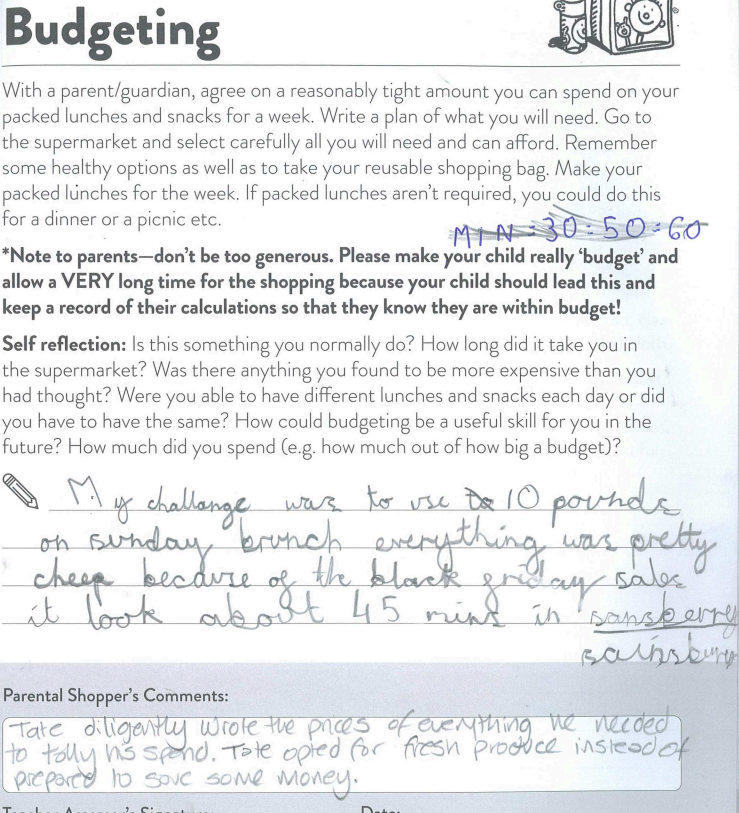 Budgeting
With a parent/guardian, agree on a reasonably tight amount you can spend on your
packed lunches and snacks for a week. Write a plan of what you will need. Go to
the supermarket and select carefully all you will need and can afford. Remember
some healthy options as well as to take your reusable shopping bag. Make your
packed lunches for the week. If packed lunches aren't required, you could do this
for a dinner or a picnic etc.
MIN = 30 = 50 = 60
*Note to parents—don't be too generous. Please make your child really 'budget' and
allow a VERY long time for the shopping because your child should lead this and
keep a record of their calculations so that they know they are within budget!
Self reflection: Is this something you normally do? How long did it take you in
the supermarket? Was there anything you found to be more expensive than you
had thought? Were you able to have different lunches and snacks each day or did
you have to have the same? How could budgeting be a useful skill for you in the
future? How much did you spend (e.g. how much out of how big a budget)?
My challange was to use 10 pounds
on sunday brunch everything was pretty
cheep because of the black griday sales
it look about 45 mins in sansberry
sainsbury
Parental Shopper's Comments:
Tate diligently wrote the prices of everything he needed
to tally his spend. Tate opted for fresh produce instead of
prepared to save some money.